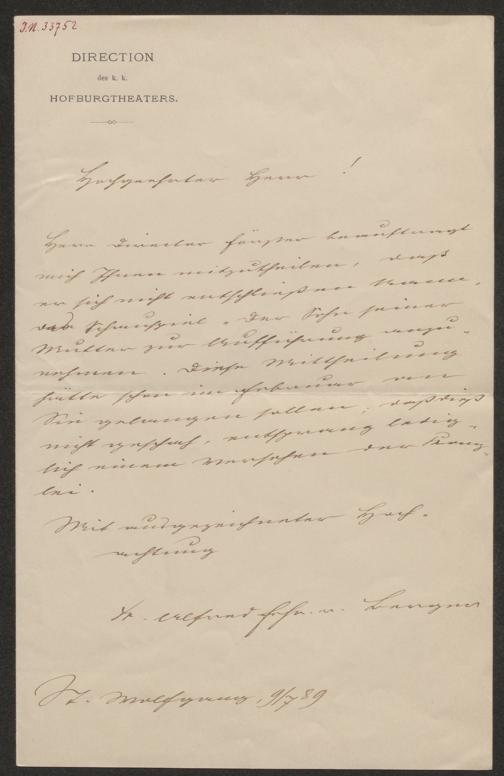 J.N. 33752
DIRECTION
des k. k.
HOFBURGTHEATERS.
Hochgeehrter Herr !
Herr Director Förster beauftragt
mich Ihnen mitzutheilen, daß
er sich nicht entschließen kann,
das Schauspiel „Der Sohn seiner
Mutter zur Aufführung anzu-
nehmen. Diese Mittheilung
hätte schon im Februar an
Sie gelangen sollen; daß dieß
nicht geschah, entsprang ledig-
lich einem Versehen der Kanz-
lei.
Mit ausgezeichneter Hoch-
achtung
Dr. Alfred Frh. v. Berger
St. Wolfgang, 9/7 89